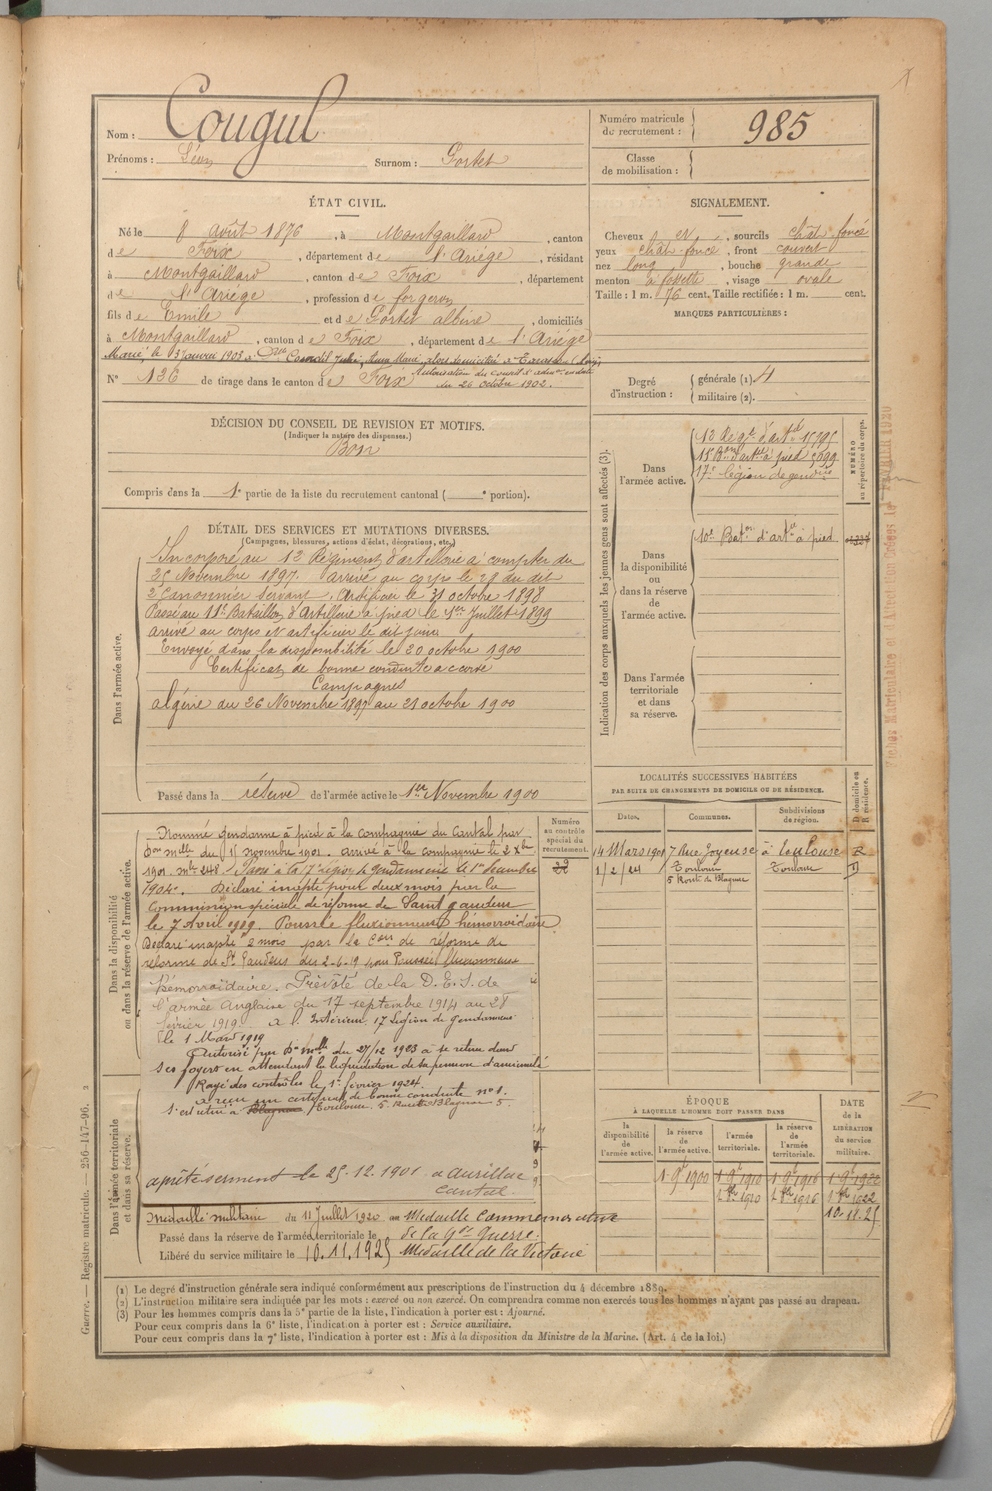 Nom : Cougul
Prénoms : Léon Surnom : Gortet
Numéro matricule du recrutement : 985
Classe de mobilisation :
ÉTAT CIVIL.
Né le 8 août 1876, à Montgaillard, canton
de Foix, département de l'Ariège, résidant
à Montgaillard, canton de Foix, département
de l'Ariège, profession de forgeron
fils de Emile et de Gortet albine, domiciliés
à Montgaillard, canton de Foix, département de l'Ariège
Marié le 3 Janvier 1903 à
Autorisation du Conseil d'admon en date
du 26 octobre 1902.
N° 136 de tirage dans le canton de Foix
SIGNALEMENT.
Cheveux et, sourcils chât. foncé
yeux chât. foncé, front couvert
nez long, bouche grande
menton à fossette, visage ovale
Taille : 1 m. 76 cent. Taille rectifiée : 1 m. cent.
MARQUES PARTICULIÈRES :
Degré d'instruction : générale (1). 4
militaire (2).
DÉCISION DU CONSEIL DE REVISION ET MOTIFS.
(Indiquer la nature des dispenses.)
Bon
Compris dans la 1e partie de la liste du recrutement cantonal ( e portion).
DÉTAIL DES SERVICES ET MUTATIONS DIVERSES.
(Campagnes, blessures, actions d'éclat, décorations, etc.)
Dans l'armée active.
Incorporé au 12 Régiment d'artillerie à compter du
25 Novembre 1897. arrivé au corps le 29 du dit
2e Canonnier servant. Artificier le 31 octobre 1898
Passé au 11e Bataillon d'Artillerie à pied le 1er Juillet 1899
arrivé au corps et artificier le dit jour
Envoyé dans la disponibilité le 20 octobre 1900
Certificat de bonne conduite accordé
Campagnes
algérie du 26 Novembre 1897 au 21 octobre 1900
Passé dans la réserve de l'armée active le 1er Novembre 1900
Indication des corps auxquels les jeunes gens sont affectés (3).
NUMÉRO au répertoire du corps.
Dans l'armée active.
12 Régt d'artie
15 Bon d'artie à pied
17e légion de gendrie
Dans la disponibilité ou dans la réserve de l'armée active.
10e Baton d'artie à pied
Dans l'armée territoriale et dans sa réserve.
LOCALITÉS SUCCESSIVES HABITÉES
PAR SUITE DE CHANGEMENTS DE DOMICILE OU DE RÉSIDENCE.
Dates. Communes. Subdivisions de région. D domicile ou R résidence.
14 Mars 1901 7 Rue Joyeuse à Toulouse R
1/2/24 Toulouse Toulouse D
5 Route de Blagnac
Dans la disponibilité ou dans la réserve de l'armée active.
Numéro au contrôle spécial du recrutement.
Nommé gendarme à pied à la compagnie du Cantal par
Don mlle du 15 novembre 1901. arrivé à la compagnie le 2 Xbre
1901. mle 248. Passé à la 17e légion de gendarmerie le 1er décembre
1904. Déclaré inapte pour deux mois par la
Commission spéciale de réforme de Saint gaudens
le 7 Avril 1919. Poussée fluxionnaire hémorroïdaire
Déclaré inapte 2 mois par la Con de réforme de
réforme de St Gaudens du 2-6-19 pour Poussée fluxionnaire
hémorroïdaire. Prévôté de la D.E.S. de
l'armée Anglaise du 17 septembre 1914 au 28
février 1919. à l'Intérieur 17 Légion de gendarmerie
le 1 Mars 1919
Autorisé par Don mlle du 27/12 1923 à se retirer dans
ses foyers en attendant la liquidation de sa pension d'ancienneté
Rayé des contrôles le 1er février 1924.
a reçu un certificat de bonne conduite n° 1.
S'est retiré à Blagnac Toulouse. 5. Route de Blagnac. 5
Dans l'armée territoriale et dans sa réserve.
a prêté serment le 25.12.1901 à Aurillac
Cantal.
Médaille militaire du 11 Juillet 1920 Médaille Commémorative
Passé dans la réserve de l'armée territoriale le de la Gde Guerre.
Libéré du service militaire le 10.11.1925 Médaille de la Victoire
ÉPOQUE
À LAQUELLE L'HOMME DOIT PASSER DANS
DATE de la LIBÉRATION du service militaire.
la disponibilité de l'armée active. la réserve de l'armée active. l'armée territoriale. la réserve de l'armée territoriale.
1 9bre 1900 1 9bre 1910 1 9bre 1916 1 9bre 1922
10.11.25
(1) Le degré d'instruction générale sera indiqué conformément aux prescriptions de l'instruction du 4 décembre 1889.
(2) L'instruction militaire sera indiquée par les mots : exercé ou non exercé. On comprendra comme non exercés tous les hommes n'ayant pas passé au drapeau.
(3) Pour les hommes compris dans la 5e partie de la liste, l'indication à porter est : Ajourné.
Pour ceux compris dans la 6e liste, l'indication à porter est : Service auxiliaire.
Pour ceux compris dans la 7e liste, l'indication à porter est : Mis à la disposition du Ministre de la Marine. (Art. 4 de la loi.)
Guerre. — Registre matricule. — 256-147-96.